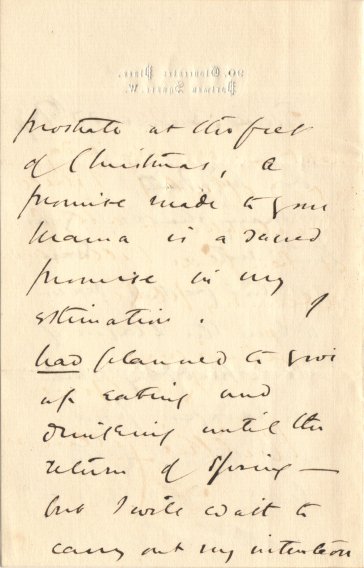 90, Gloucester Place,
Portman Square. W.
prostrate at the feet
of Christmas, a
promise made to your
Mama is a sacred
promise in my
estimation. I
had planned to give
up eating and
drinking until the
return of Spring —
but I will wait to
carry out my intention